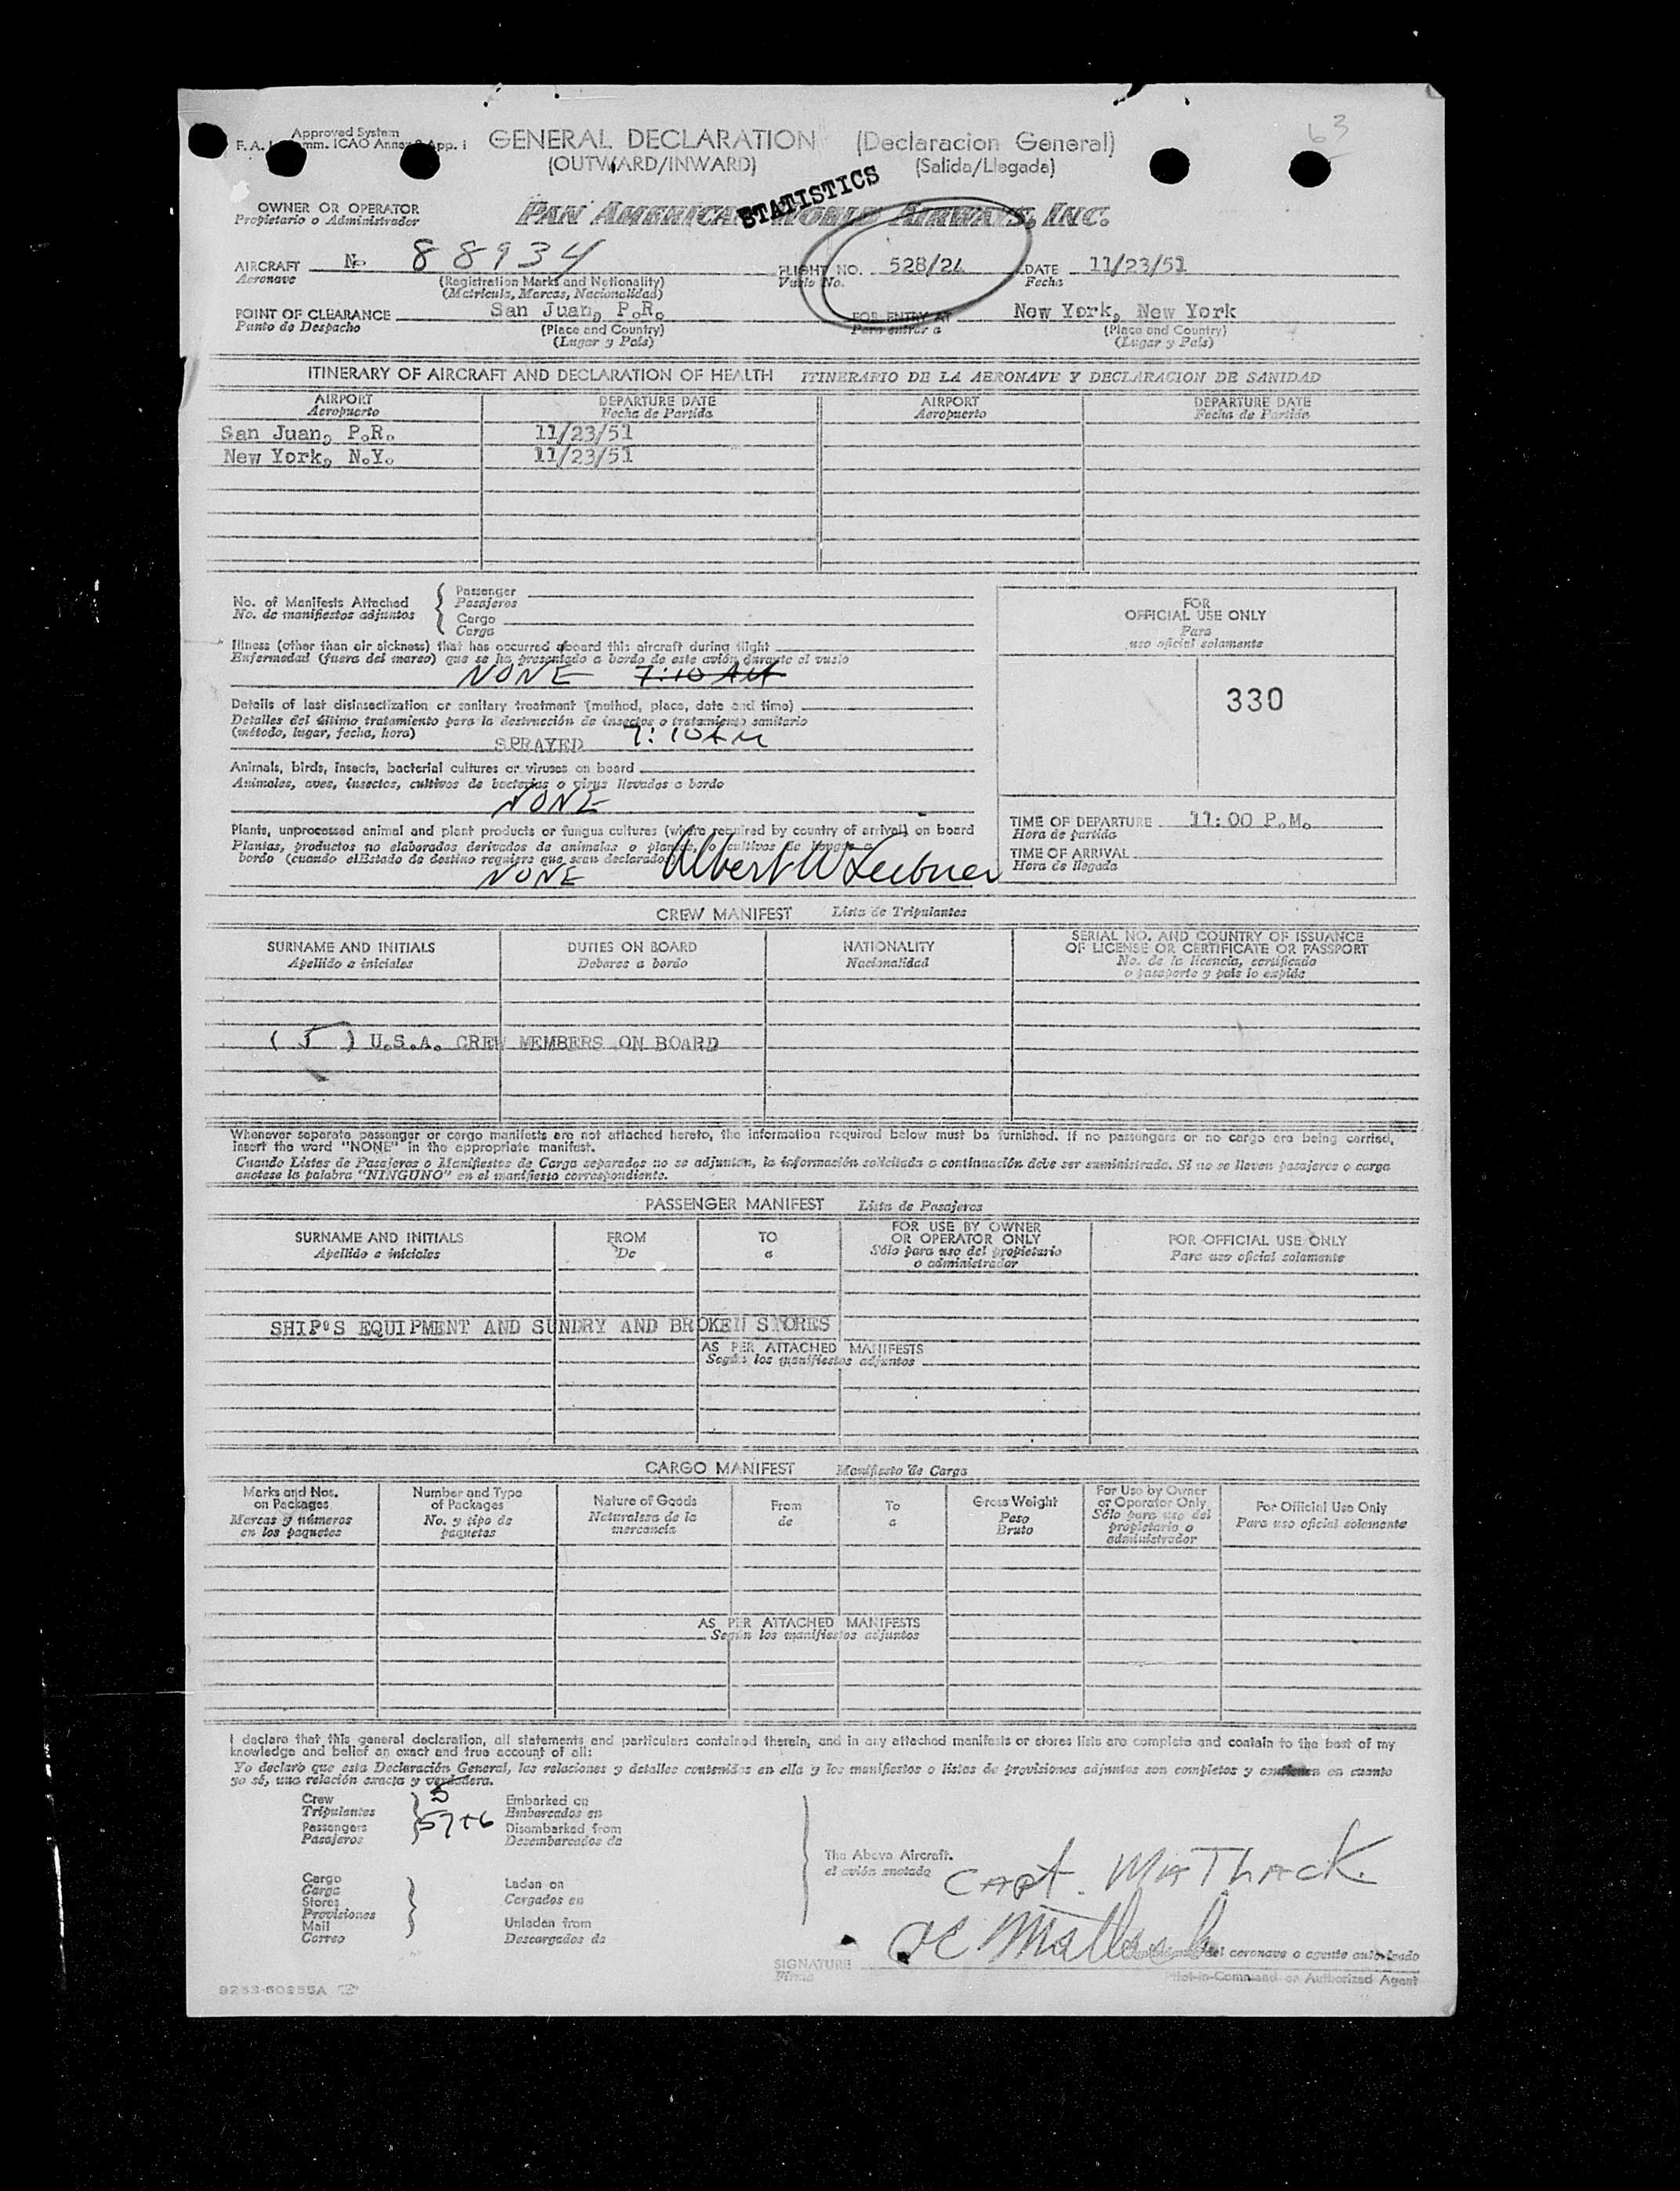 63
Approved System
GENERAL DECLARATION (Declaracion General)
(OUTWARD/INWARD) (Salida/Llegada)
STATISTICS
OWNER OR OPERATOR
Propietario o Administrador
PAN AMERICAN WORLD AIRWAYS, INC.
AIRCRAFT N- 88934 FLIGHT NO. 528/24 DATE 11/23/51
Aeronave (Registration Marks and Nationality) Vuelo No. Fecha
(Matricula, Marcas, Nacionalidad)
POINT OF CLEARANCE San Juan, P.R. FOR ENTRY AT New York, New York
Punto de Despacho (Place and Country) Para entrar a (Place and Country)
(Lugar y Pais) (Lugar y Pais)
ITINERARY OF AIRCRAFT AND DECLARATION OF HEALTH ITINERARIO DE LA AERONAVE Y DECLARACION DE SANIDAD
AIRPORT DEPARTURE DATE AIRPORT DEPARTURE DATE
Aeropuerto Fecha de Partida Aeropuerto Fecha de Partida
San Juan, P.R. 11/23/51
New York, N.Y. 11/23/51
No. of Manifests Attached
No. de manifiestos adjuntos
Passenger
Pasajeros
Cargo
Carga
FOR
OFFICIAL USE ONLY
Para
uso oficial solamente
330
Illness (other than air sickness) that has occurred aboard this aircraft during flight
Enfermedad (fuera del mareo) que se ha presentado a bordo de este avión durante el vuelo
NONE 7:10 AM
Details of last disinsectization or sanitary treatment (method, place, date and time)
Detalles del último tratamiento para la destrucción de insectos o tratamiento sanitario
(método, lugar, fecha, hora)
SPRAYED 7:10AM
Animals, birds, insects, bacterial cultures or viruses on board
Animales, aves, insectos, cultivos de bacterias o virus llevados a bordo
NONE
Plants, unprocessed animal and plant products or fungus cultures (where required by country of arrival) on board
Plantas, productos no elaborados derivados de animales o plantas, o cultivos de hongos a
bordo (cuando elEstado de destino requiera que sean declarados)
NONE Albert W Leubner
TIME OF DEPARTURE 11:00 P.M.
Hora de partida
TIME OF ARRIVAL
Hora de llegada
CREW MANIFEST Lista de Tripulantes
SURNAME AND INITIALS DUTIES ON BOARD NATIONALITY SERIAL NO. AND COUNTRY OF ISSUANCE
OF LICENSE OR CERTIFICATE OR PASSPORT
Apellido e iniciales Deberes a bordo Nacionalidad No. de la licencia, certificado
o pasaporte y país lo expide
( 5 ) U.S.A. CREW MEMBERS ON BOARD
Whenever separate passenger or cargo manifests are not attached hereto, the information required below must be furnished. If no passengers or no cargo are being carried,
insert the word "NONE" in the appropriate manifest.
Cuando Listas de Pasajeros o Manifiestos de Carga separados no se adjuntan, la información solicitada a continuación debe ser suministrada. Si no se llevan pasajeros o carga
anotese la palabra "NINGUNO" en el manifiesto correspondiente.
PASSENGER MANIFEST Lista de Pasajeros
SURNAME AND INITIALS FROM TO FOR USE BY OWNER
OR OPERATOR ONLY FOR OFFICIAL USE ONLY
Apellido e iniciales De a Sólo para uso del propietario
o administrador Para uso oficial solamente
SHIP'S EQUIPMENT AND SUNDRY AND BROKEN STORES
AS PER ATTACHED MANIFESTS
Según los manifiestos adjuntos
CARGO MANIFEST Manifiesto de Carga
Marks and Nos.
on Packages
Marcas y números
en los paquetes
Number and Type
of Packages
No. y tipo de
paquetes
Nature of Goods
Naturaleza de la
mercancia
From
de
To
a
Gross Weight
Peso
Bruto
For Use by Owner
or Operator Only
Sólo para uso del
propietario o
administrador
For Official Use Only
Para uso oficial solamente
AS PER ATTACHED MANIFESTS
Según los manifiestos adjuntos
I declare that this general declaration, all statements and particulars contained therein, and in any attached manifests or stores lists are complete and contain to the best of my
knowledge and belief an exact and true account of all:
Yo declaro que esta Declaración General, las relaciones y detalles contenidos en ella y los manifiestos o listas de provisiones adjuntas son completos y contienen en cuanto
yo sé, una relación exacta y verdadera.
Crew 5 Embarked on
Tripulantes Embarcados en
Passengers 57+6 Disembarked from
Pasajeros Desembarcados de
The Above Aircraft.
el avión anotado
Capt. MATLACK
Cargo
Carga
Stores
Provisiones
Mail
Correo
Laden on
Cargados en
Unladen from
Descargados de
SIGNATURE
Firma
del aeronave o agente autorizado
Pilot-in-Command or Authorized Agent